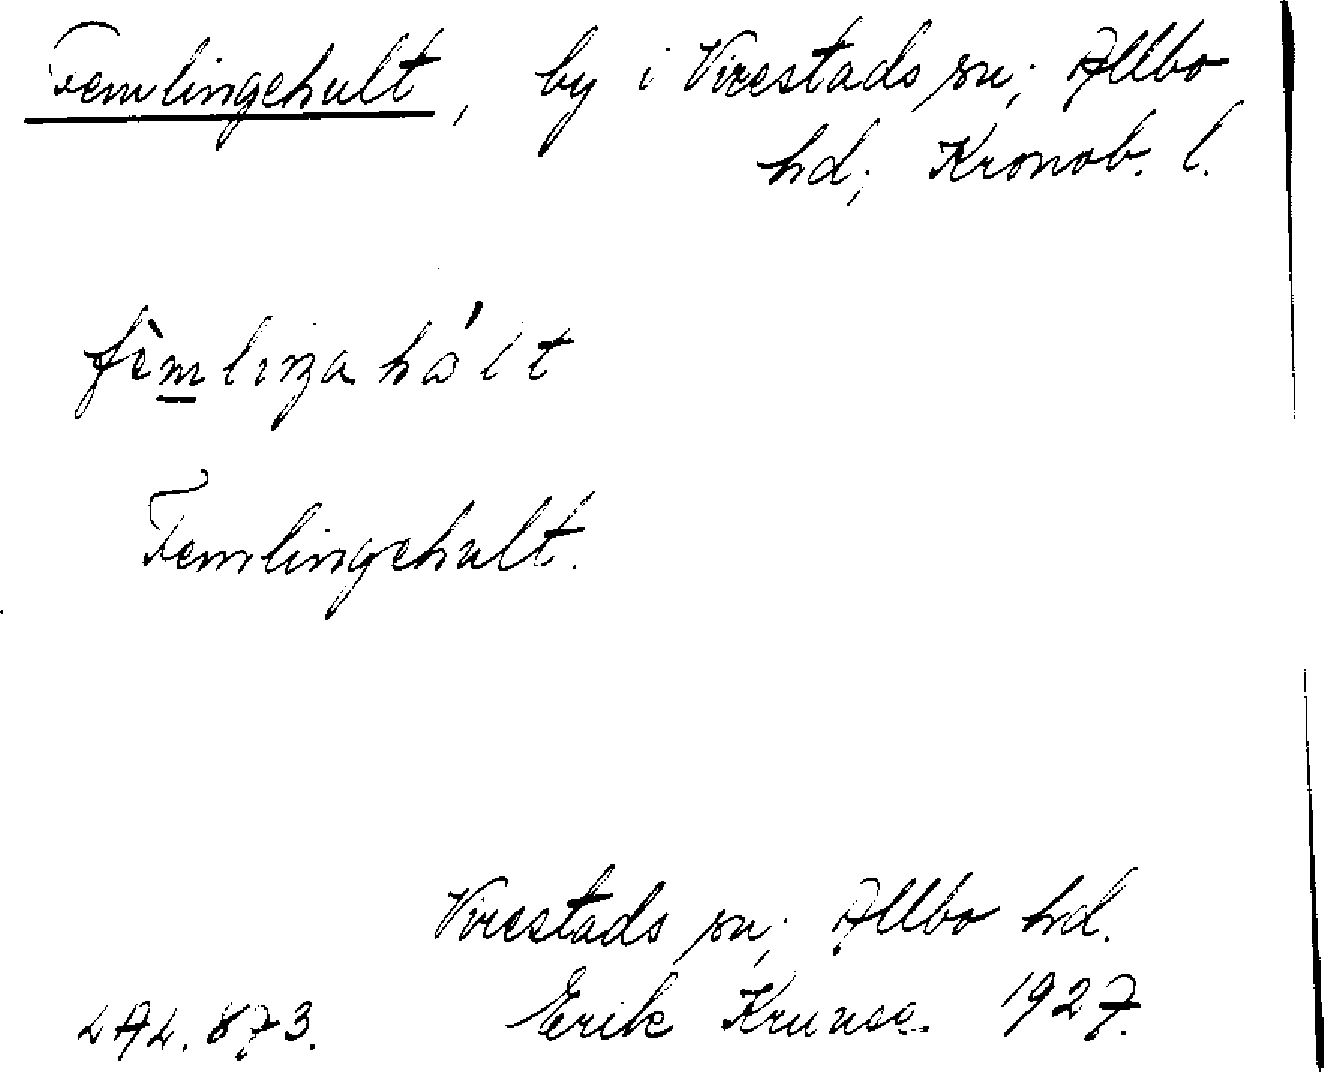 Femlingehult, by i Virestads sn; Allbo
hd; Kronob. l.
fèmlıŋahált
Femlingehult.
Virestads sn; Allbo hd.
LAL. 873. Erik Kruuse 1927.